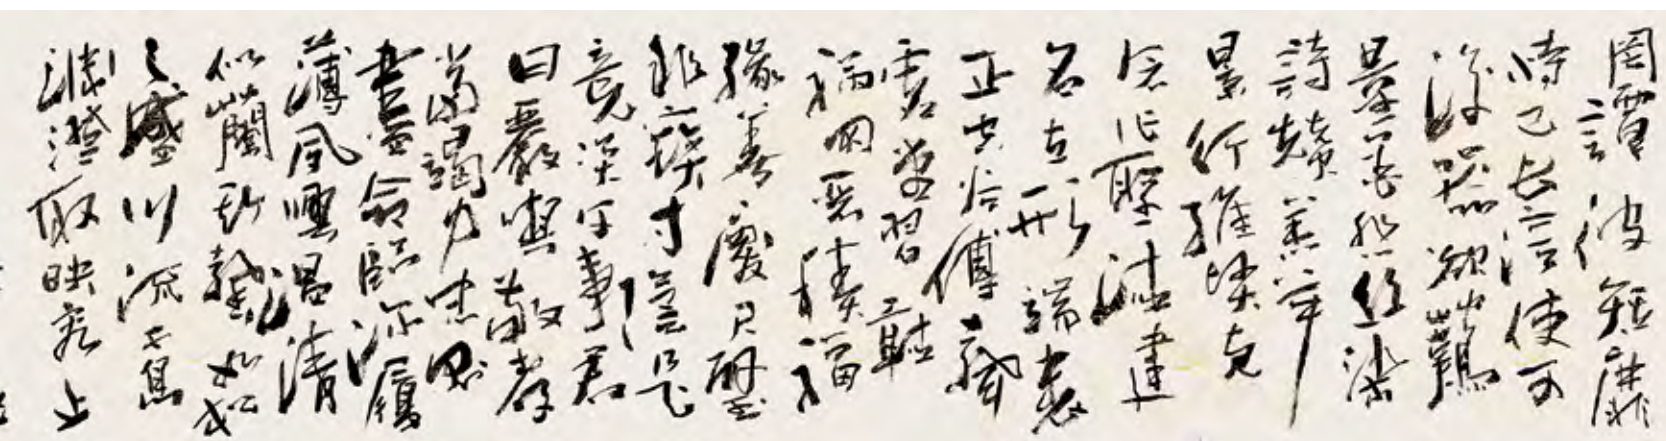 罔談彼短靡
恃己長信使可
覆器欲難
量墨悲絲染
詩讚羔羊
景行維賢克
念作聖德建
名立形端表
正空谷傳聲
虛堂習聽
禍因惡積福
緣善慶尺璧
非寶寸陰是
競資父事君
曰嚴與敬孝
當竭力忠則
盡命臨深履
薄夙興溫清
似蘭斯馨如松
之盛川流不息
淵澄取映容止